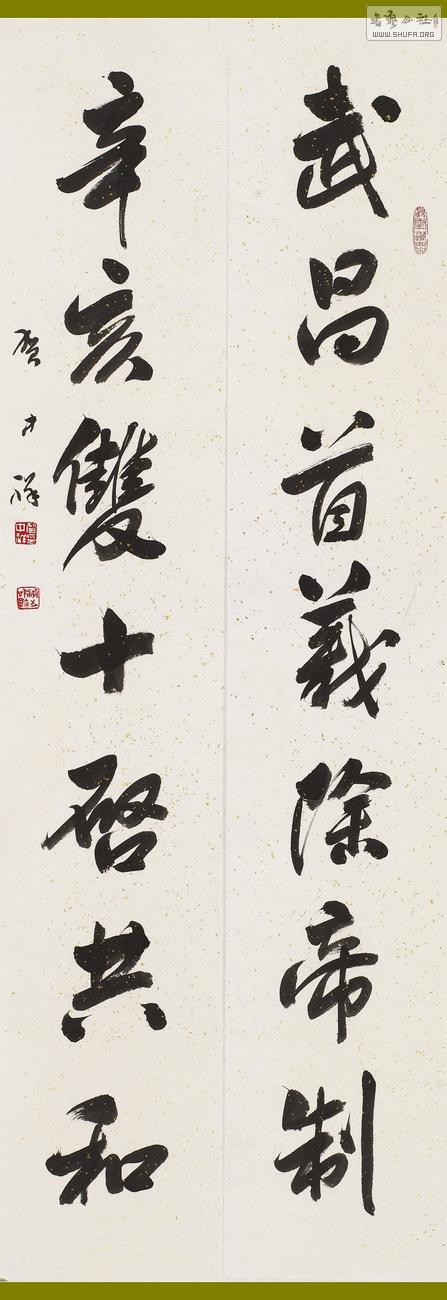 書藝公社
WWW.SHUFA.ORG
武昌首義除帝制
辛亥雙十啓共和
賀才祥